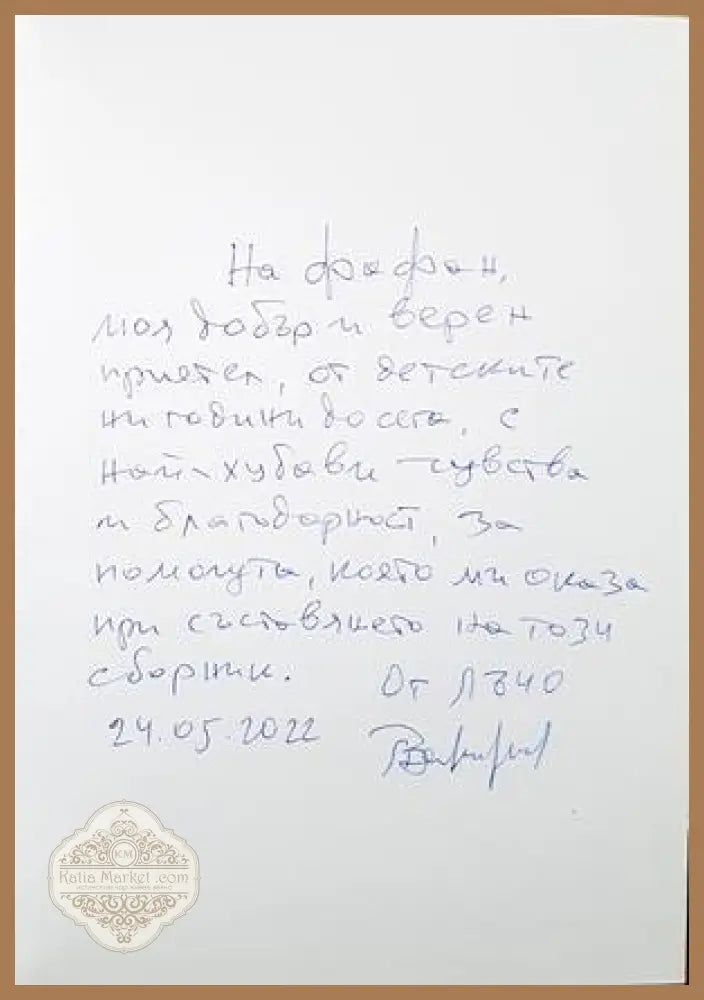 На Фафан,
моя добър и верен
приятел, от детските
ни години до сега, с
най-хубави чувства
и благодарност, за
помощта, която ми оказа
при съставянето на този
сборник.
От ЛЪЧО
24.05.2022
KM
Katia Market .com